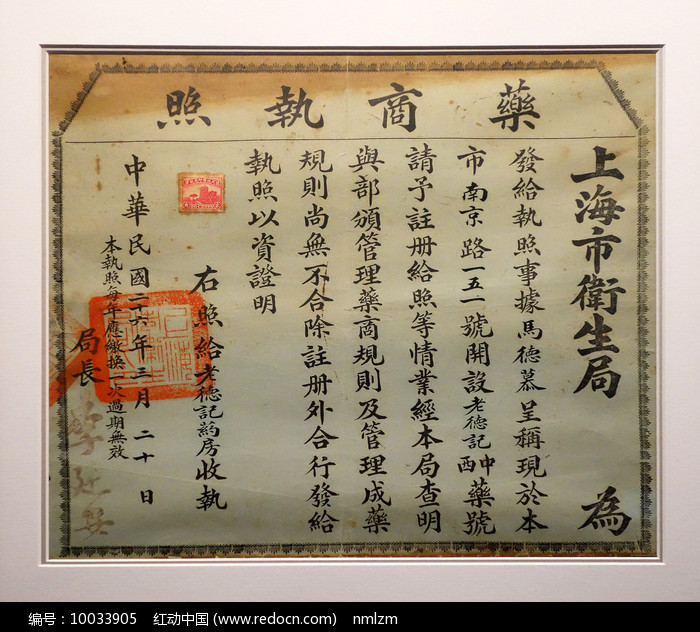 藥商執照
上海市衛生局　為
發給執照事據馬德慕呈稱現於本
市南京路一五一號開設老德記中西藥號
請予註册給照等情業經本局查明
與部頒管理藥商規則及管理成藥
規則尚無不合除註册外合行發給
執照以資證明
右照給老德記药房收執
中華民國二十六年三月二十日
本執照每年應繳換一次過期無效
局長
编号：10033905　红动中国 (www.redocn.com)　nmlzm